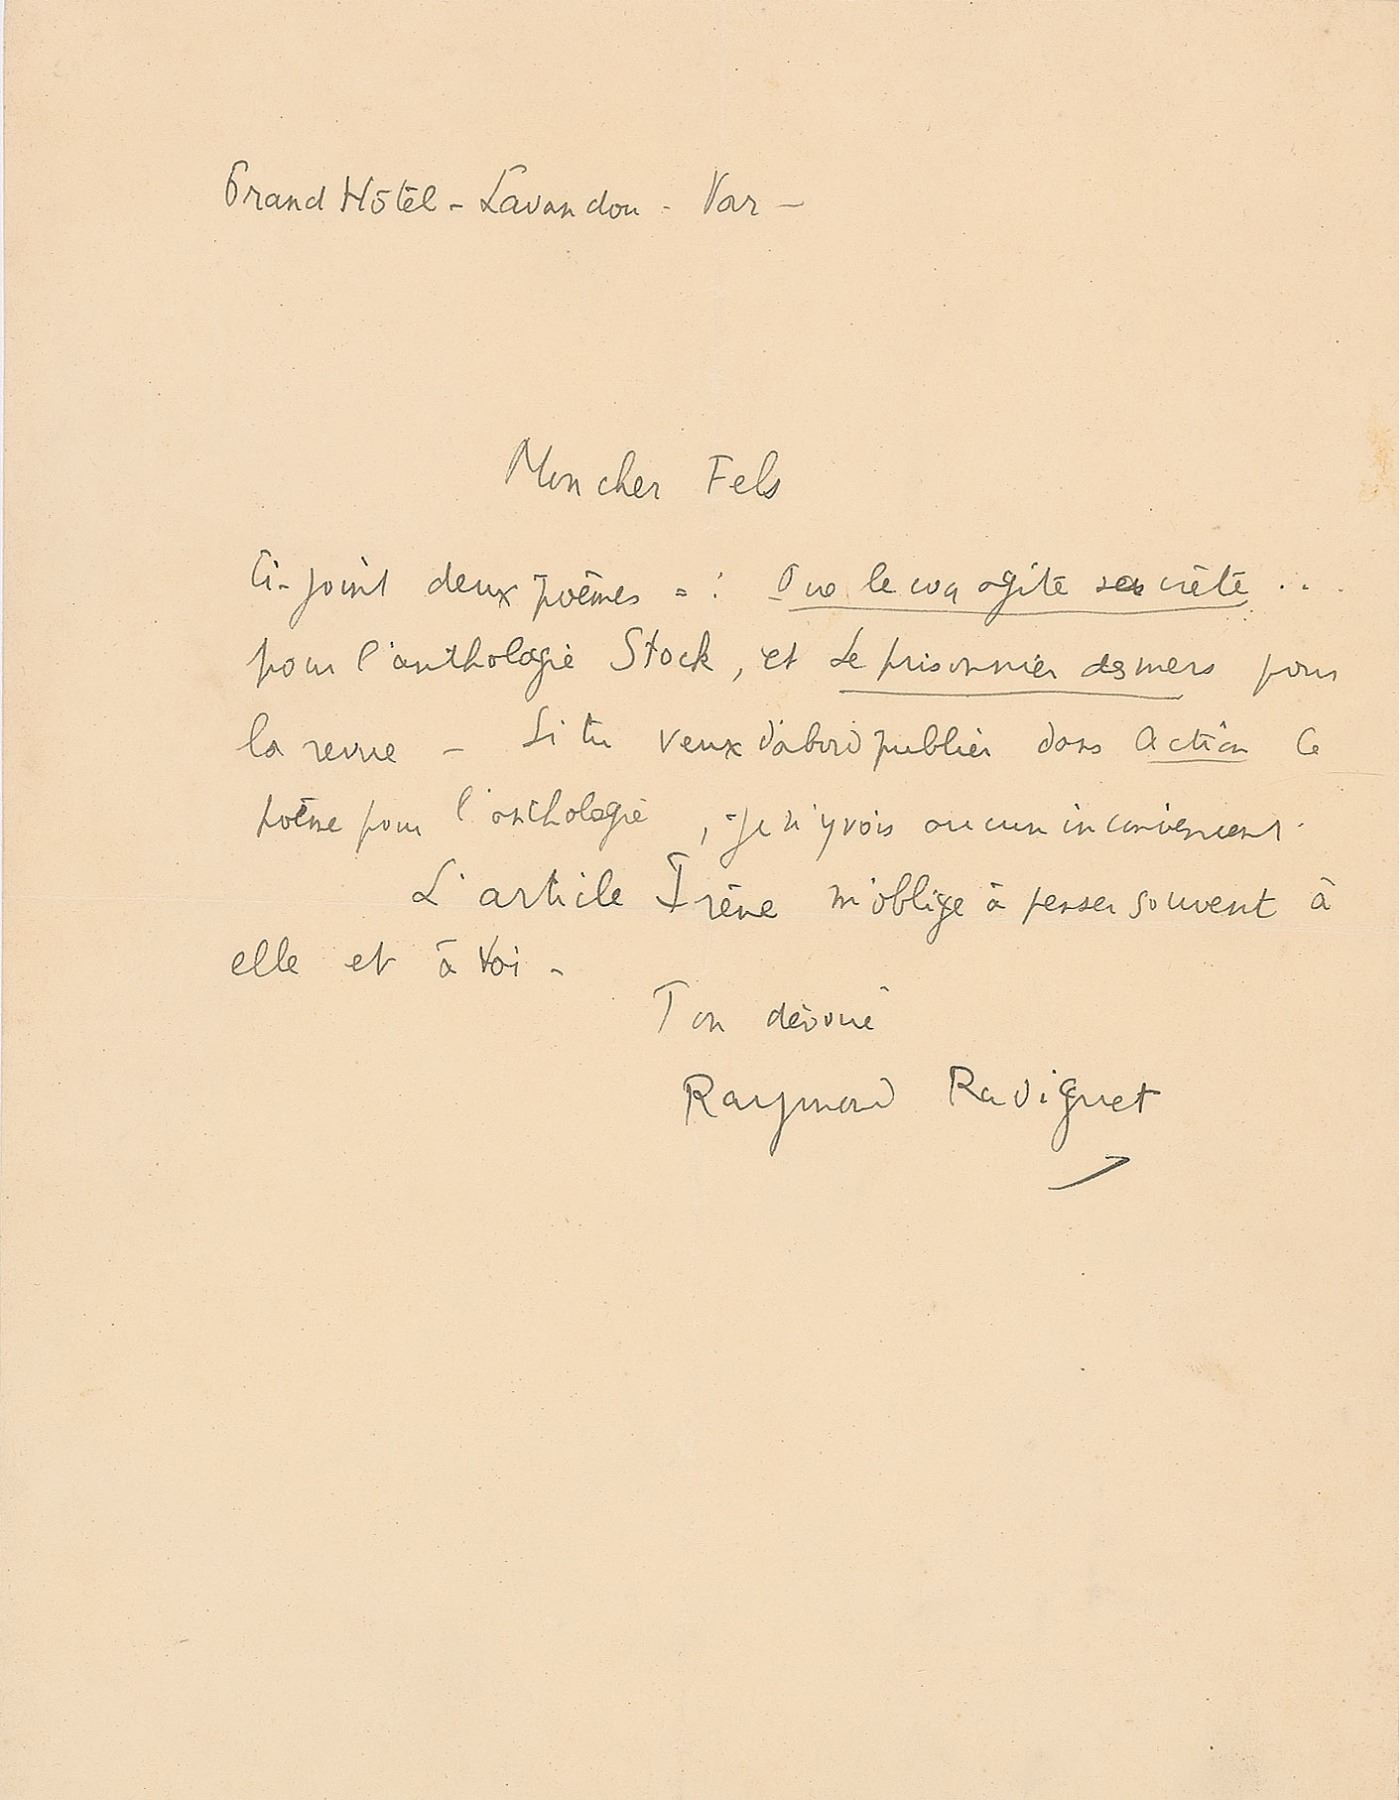 Grand Hôtel - Lavandou - Var -
Mon cher Fels
Ci-joint deux poèmes - : Que le coq agite sa crête ..
pour l'anthologie Stock, et Le prisonnier des mers pour
la revue - Si tu veux d'abord publier dans Action ce
poème pour l'anthologie, je n'y vois aucun inconvénient.
L'article Irène m'oblige à penser souvent à
elle et à toi -
Ton dévoué
Raymond Radiguet